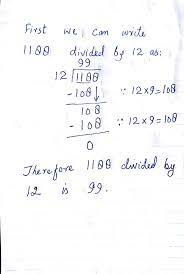 First we, can write
1188 divided by 12 as:
99
12 | 1188
-108↓ ∵ 12×9=108
108
-108 ∵ 12×9=108
0
Therefore 1188 divided by
12 is 99.